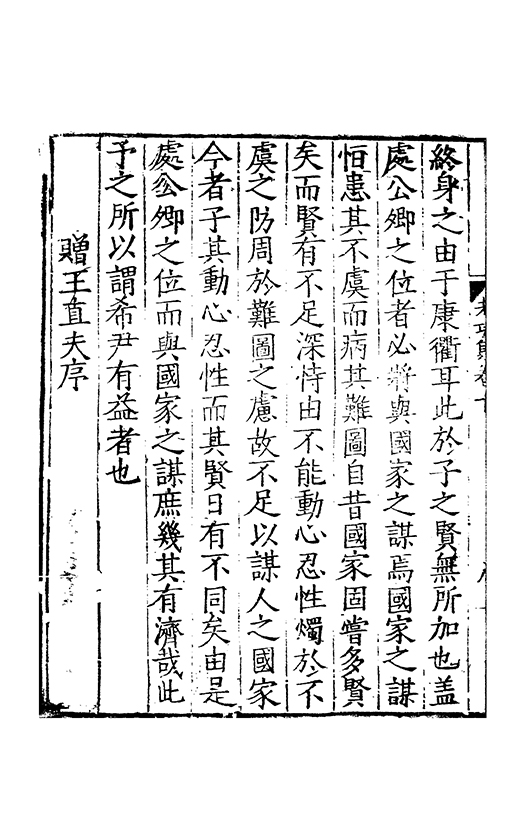 終身之由于康衢耳此於子之賢無所加也盖
處公卿之位者必將與國家之謀焉國家之謀
恒患其不虞而病其難圖自昔國家固嘗多賢
矣而賢有不足深恃由不能動心忍性燭於不
虞之防周於難圖之慮故不足以謀人之國家
今者子其動心忍性而其賢日有不同矣由是
處公卿之位而與國家之謀庶幾其有濟哉此
予之所以謂希尹有益者也
贈王直夫序